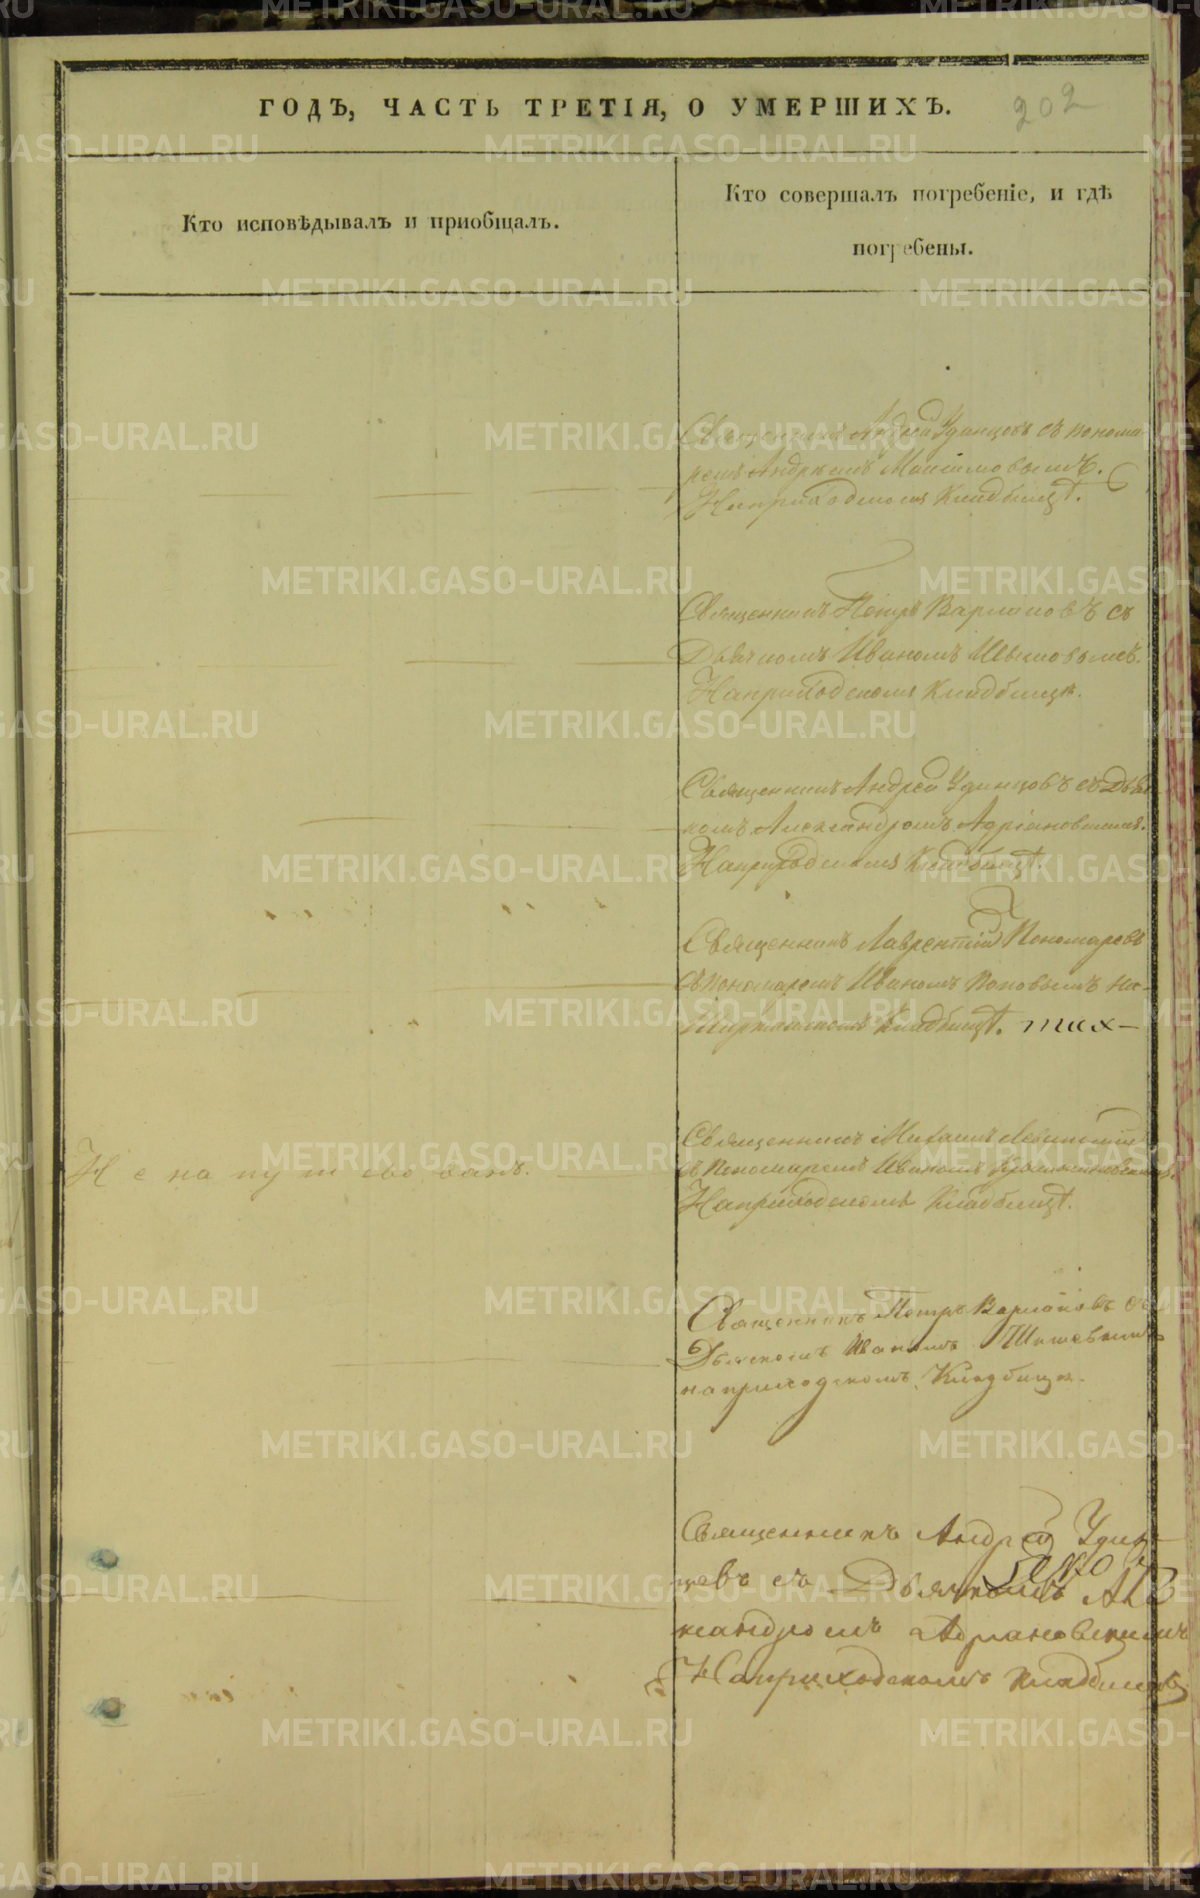 ГОДЪ, ЧАСТЬ ТРЕТІЯ, О УМЕРШИХЪ.
202
Кто исповѣдывалъ и приобщалъ.
Кто совершалъ погребеніе, и гдѣ
погребены.
Священникъ Андрей Удинцовъ съ понома-
ремъ Андреемъ
Наприходскомъ Кладбищѣ.
Священникъ Петръ Варлаковъ съ
Дьячкомъ Иваномъ
Наприходскомъ Кладбищѣ.
Священникъ Андрей Удинцовъ съ Дьяч
комъ Александромъ Адріановскимъ.
Наприходскомъ Кладбищѣ.
Священникъ Лаврентій Пономаревъ
съ пономаремъ Иваномъ Поповымъ на-
Кладбищѣ.
Ненапутствованъ.
Священникъ Михаилъ Левитскій
съ Пономаремъ Иваномъ
Наприходскомъ Кладбищѣ.
Священникъ Петръ Варлаковъ съ
Дьячкомъ Иваномъ
наприходскомъ Кладбищѣ.
Священникъ Андрей Удин-
цевъ съ Дьячкомъ Алек
сандромъ Адриановскимъ
Наприходскомъ Кладбищѣ
METRIKI.GASO-URAL.RU